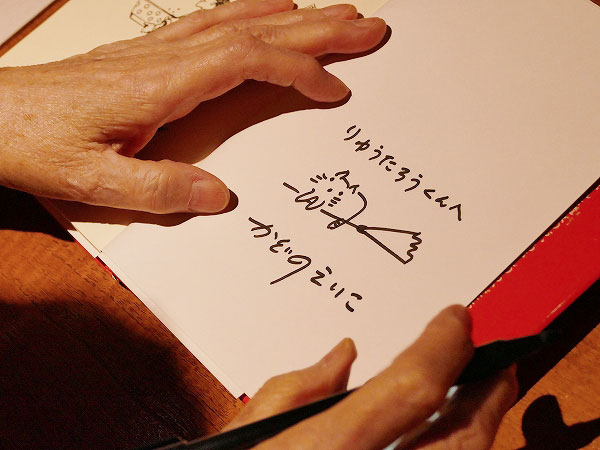 りゅうたろうくんへ
かどのえいこ